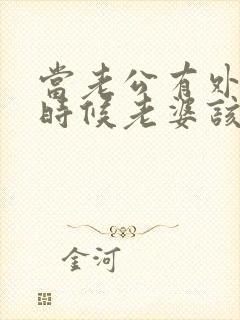 當老公有外
時候老婆該
金河